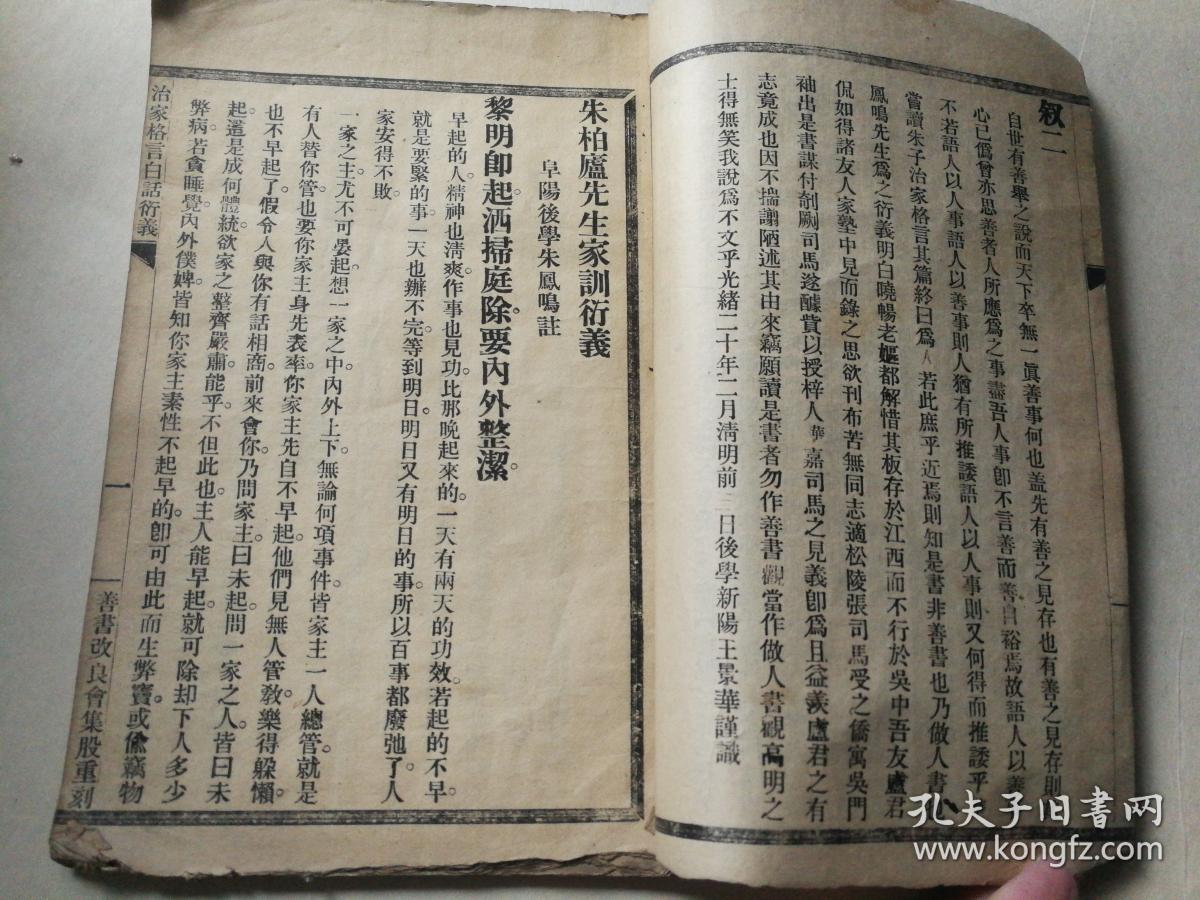 敘二
自世有善舉之說而天下卒無一眞善事何也盖先有善之見存也有善之見存則
心已僞曾亦思善者人所應爲之事盡吾人事卽不言善而善自裕焉故語人以善
不若語人以人事語人以善事則人猶有所推諉語人以人事則又何得而推諉乎
嘗讀朱子治家格言其篇終曰爲人若此庶乎近焉則知是書非善書也乃做人書
鳳鳴先生爲之衍義明白曉暢老嫗都解惜其板存於江西而不行於吳中吾友盧君
侃如得諸友人家塾中見而錄之思欲刊布苦無同志適松陵張司馬受之僑寓吳門
袖出是書謀付剞劂司馬遂醵貲以授梓人華嘉司馬之見義卽爲且益羨盧君之有
志竟成也因不揣譾陋述其由來竊願讀是書者勿作善書觀當作做人書觀高明之
士得無笑我說爲不文乎光緒二十年二月淸明前三日後學新陽王景華謹識
朱柏廬先生家訓衍義
阜陽後學朱鳳鳴註
黎明卽起洒掃庭除。要內外整潔。
早起的人。精神也淸爽。作事也見功。比那晚起來的。一天有兩天的功效。若起的不早。
就是要緊的事。一天也辦不完。等到明日。明日又有明日的事。所以百事都廢弛了。人
家安得不敗。
一家之主。尤不可晏起。想一家之中。內外上下。無論何項事件。皆家主一人總管。就是
有人替你管。也要你家主身先表率。你家主先自不早起。他們見無人管教。樂得躲懶。
也不早起了。假令人與你有話相商。前來會你。乃問家主。曰未起。問一家之人。皆曰未
起。還是成何體統。欲家之整齊嚴肅。能乎。不但此也。主人能早起。就可除却下人多少
弊病。若貪睡覺。內外僕婢。皆知你家主素性不起早的。卽可由此而生弊竇。或偸竊物
治家格言白話衍義
一
善書改良會集股重刻
孔夫子旧书网
www.kongfz.com